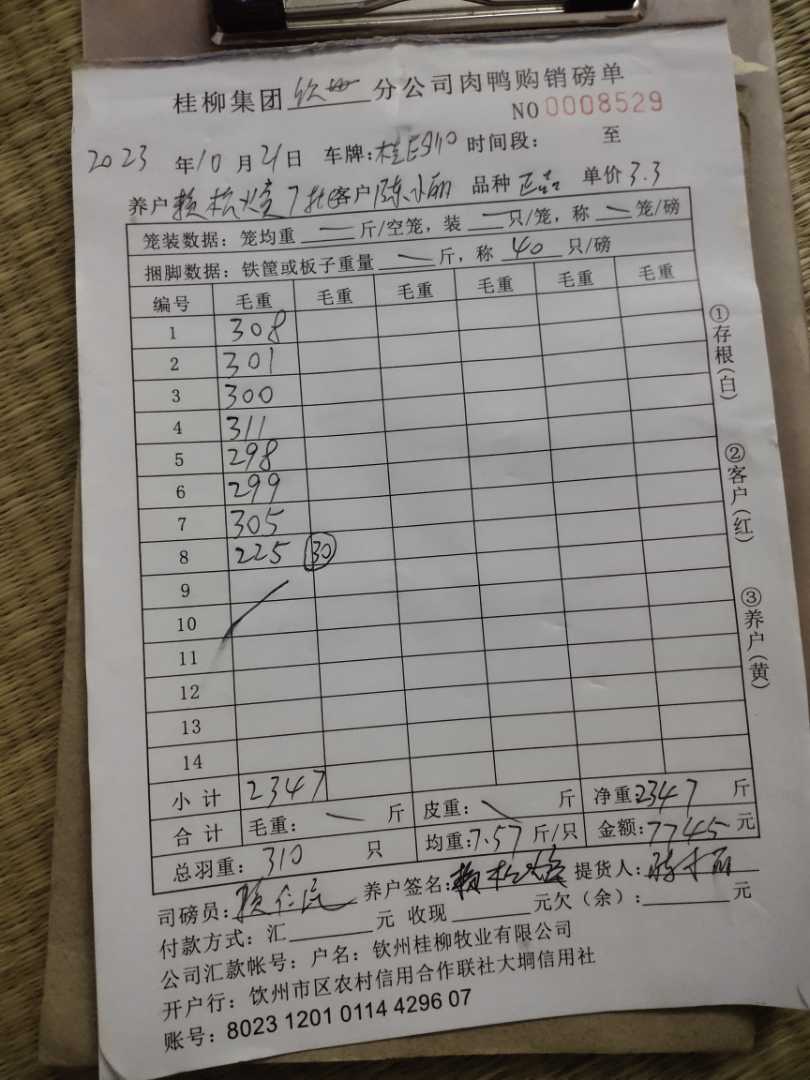 桂柳集团 钦州 分公司肉鸭购销磅单
NO 0008529
2023 年 10 月 21 日 车牌: 时间段: 至
养户 7批 客户 陈小丽 品种 正品 单价 3.3
笼装数据：笼均重 一 斤/空笼，装 一 只/笼，称 一 笼/磅
捆脚数据：铁筐或板子重量 一 斤，称 40 只/磅
编号 毛重 毛重 毛重 毛重 毛重 毛重
1 308
2 301
3 300
4 311
5 298
6 299
7 305
8 225 30
9
10
11
12
13
14
小计 2347 净重:2347 斤
合计 毛重: 一 斤 皮重: 斤
总羽重: 310 只 均重:7.57 斤/只 金额:7745 元
司磅员: 养户签名: 提货人:
付款方式: 汇 元 收现 元欠（余）: 元
公司汇款帐号: 户名: 钦州桂柳牧业有限公司
开户行: 钦州市区农村信用合作联社大垌信用社
账号: 8023 1201 0114 4296 07
①存根(白)
②客户(红)
③养户(黄)